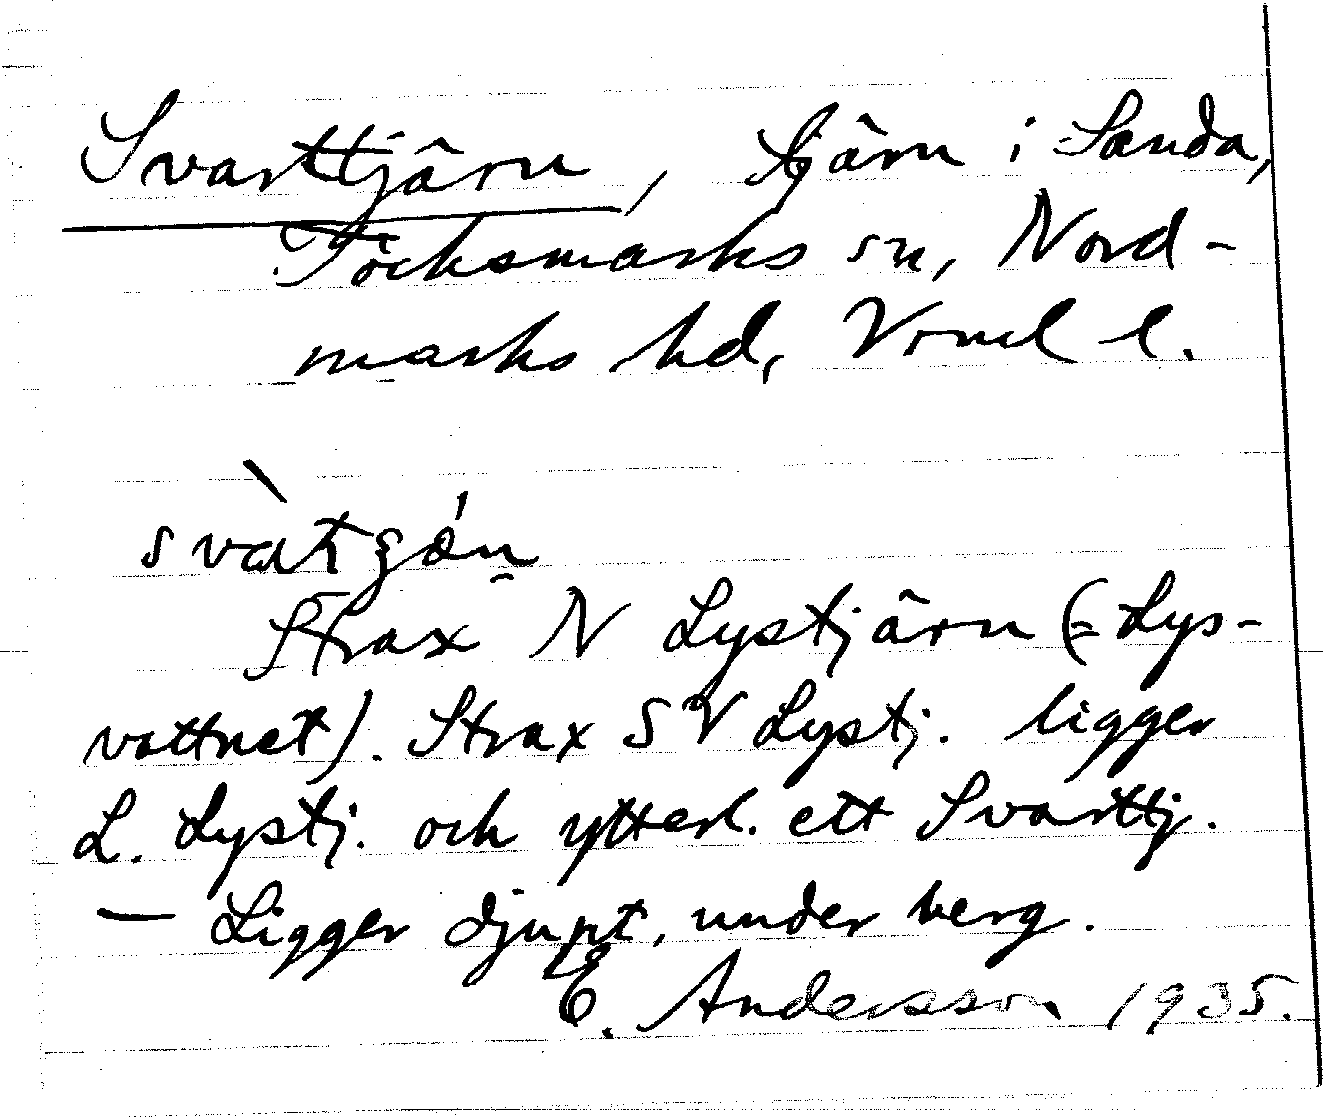 Svarttjärn, tjärn i Sanda,
Töcksmarks sn, Nord-
marks hd, Vrml l.
Strax N Lystjärn (= Lys-
vattnet). Strax SV Lystj. ligger
L. Lystj. och ytterl. ett Svarttj.
— Ligger djupt, under berg.
E. Andersson 1935.